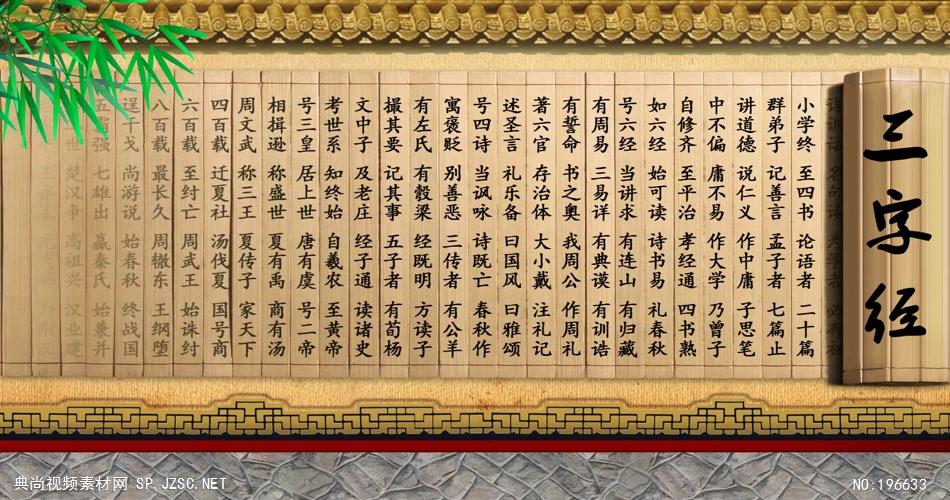 三字经
小学终 至四书 论语者 二十篇
群弟子 记善言 孟子者 七篇止
讲道德 说仁义 作中庸 子思笔
中不偏 庸不易 作大学 乃曾子
自修齐 至平治 孝经通 四书熟
如六经 始可读 诗书易 礼春秋
号六经 当讲求 有连山 有归藏
有周易 三易详 有典谟 有训诰
有誓命 书之奥 我周公 作周礼
著六官 存治体 大小戴 注礼记
述圣言 礼乐备 曰国风 曰雅颂
号四诗 当讽咏 诗既亡 春秋作
寓褒贬 别善恶 三传者 有公羊
有左氏 有彀梁 经既明 方读子
撮其要 记其事 五子者 有荀杨
文中子 及老庄 经子通 读诸史
考世系 知终始 自羲农 至黄帝
号三皇 居上世 唐有虞 号二帝
相揖逊 称盛世 夏有禹 商有汤
周文武 称三王 夏传子 家天下
四百载 迁夏社 汤伐夏 国号商
六百载 至纣亡 周武王 始诛纣
八百载 最长久 周辙东 王纲堕
逞干戈 尚游说 始春秋 终战国
五霸强 七雄出 嬴秦氏 始兼并
世 楚汉争 高祖兴 汉业建
典尚视频素材网 SP.JZSC.NET
NO:196633